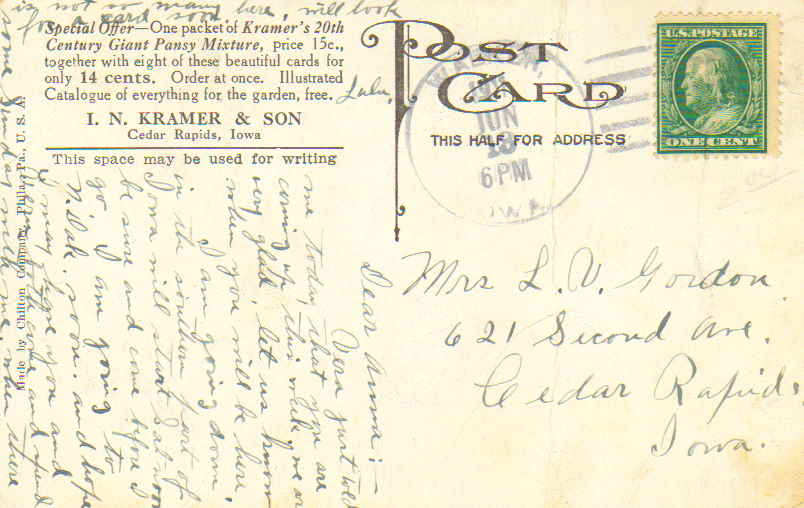 is not so many here, will look
for a card soon
Special Offer—One packet of Kramer's 20th
Century Giant Pansy Mixture, price 15c.,
together with eight of these beautiful cards for
only 14 cents. Order at once. Illustrated
Catalogue of everything for the garden, free.
I. N. KRAMER & SON
Cedar Rapids, Iowa
This space may be used for writing
Lulu,
POST CARD
THIS HALF FOR ADDRESS
JUN
6 PM
IOWA
U.S. POSTAGE
ONE CENT
Mrs L. V. Gordon
621 Second Ave.
Cedar Rapids,
Iowa.
Dear Anna:—
Vera just told
me today that you are
coming up this week, we are
very glad, let us know
when you will be here,
I am going down
in the southern part of
Iowa will start Sat. so
be sure and come before I
go I am going to
N. Dak. soon. and hope
I may see you and
come and spend
some Sunday with me, when there
Made by Chilton Company, Phila., Pa., U. S. A.